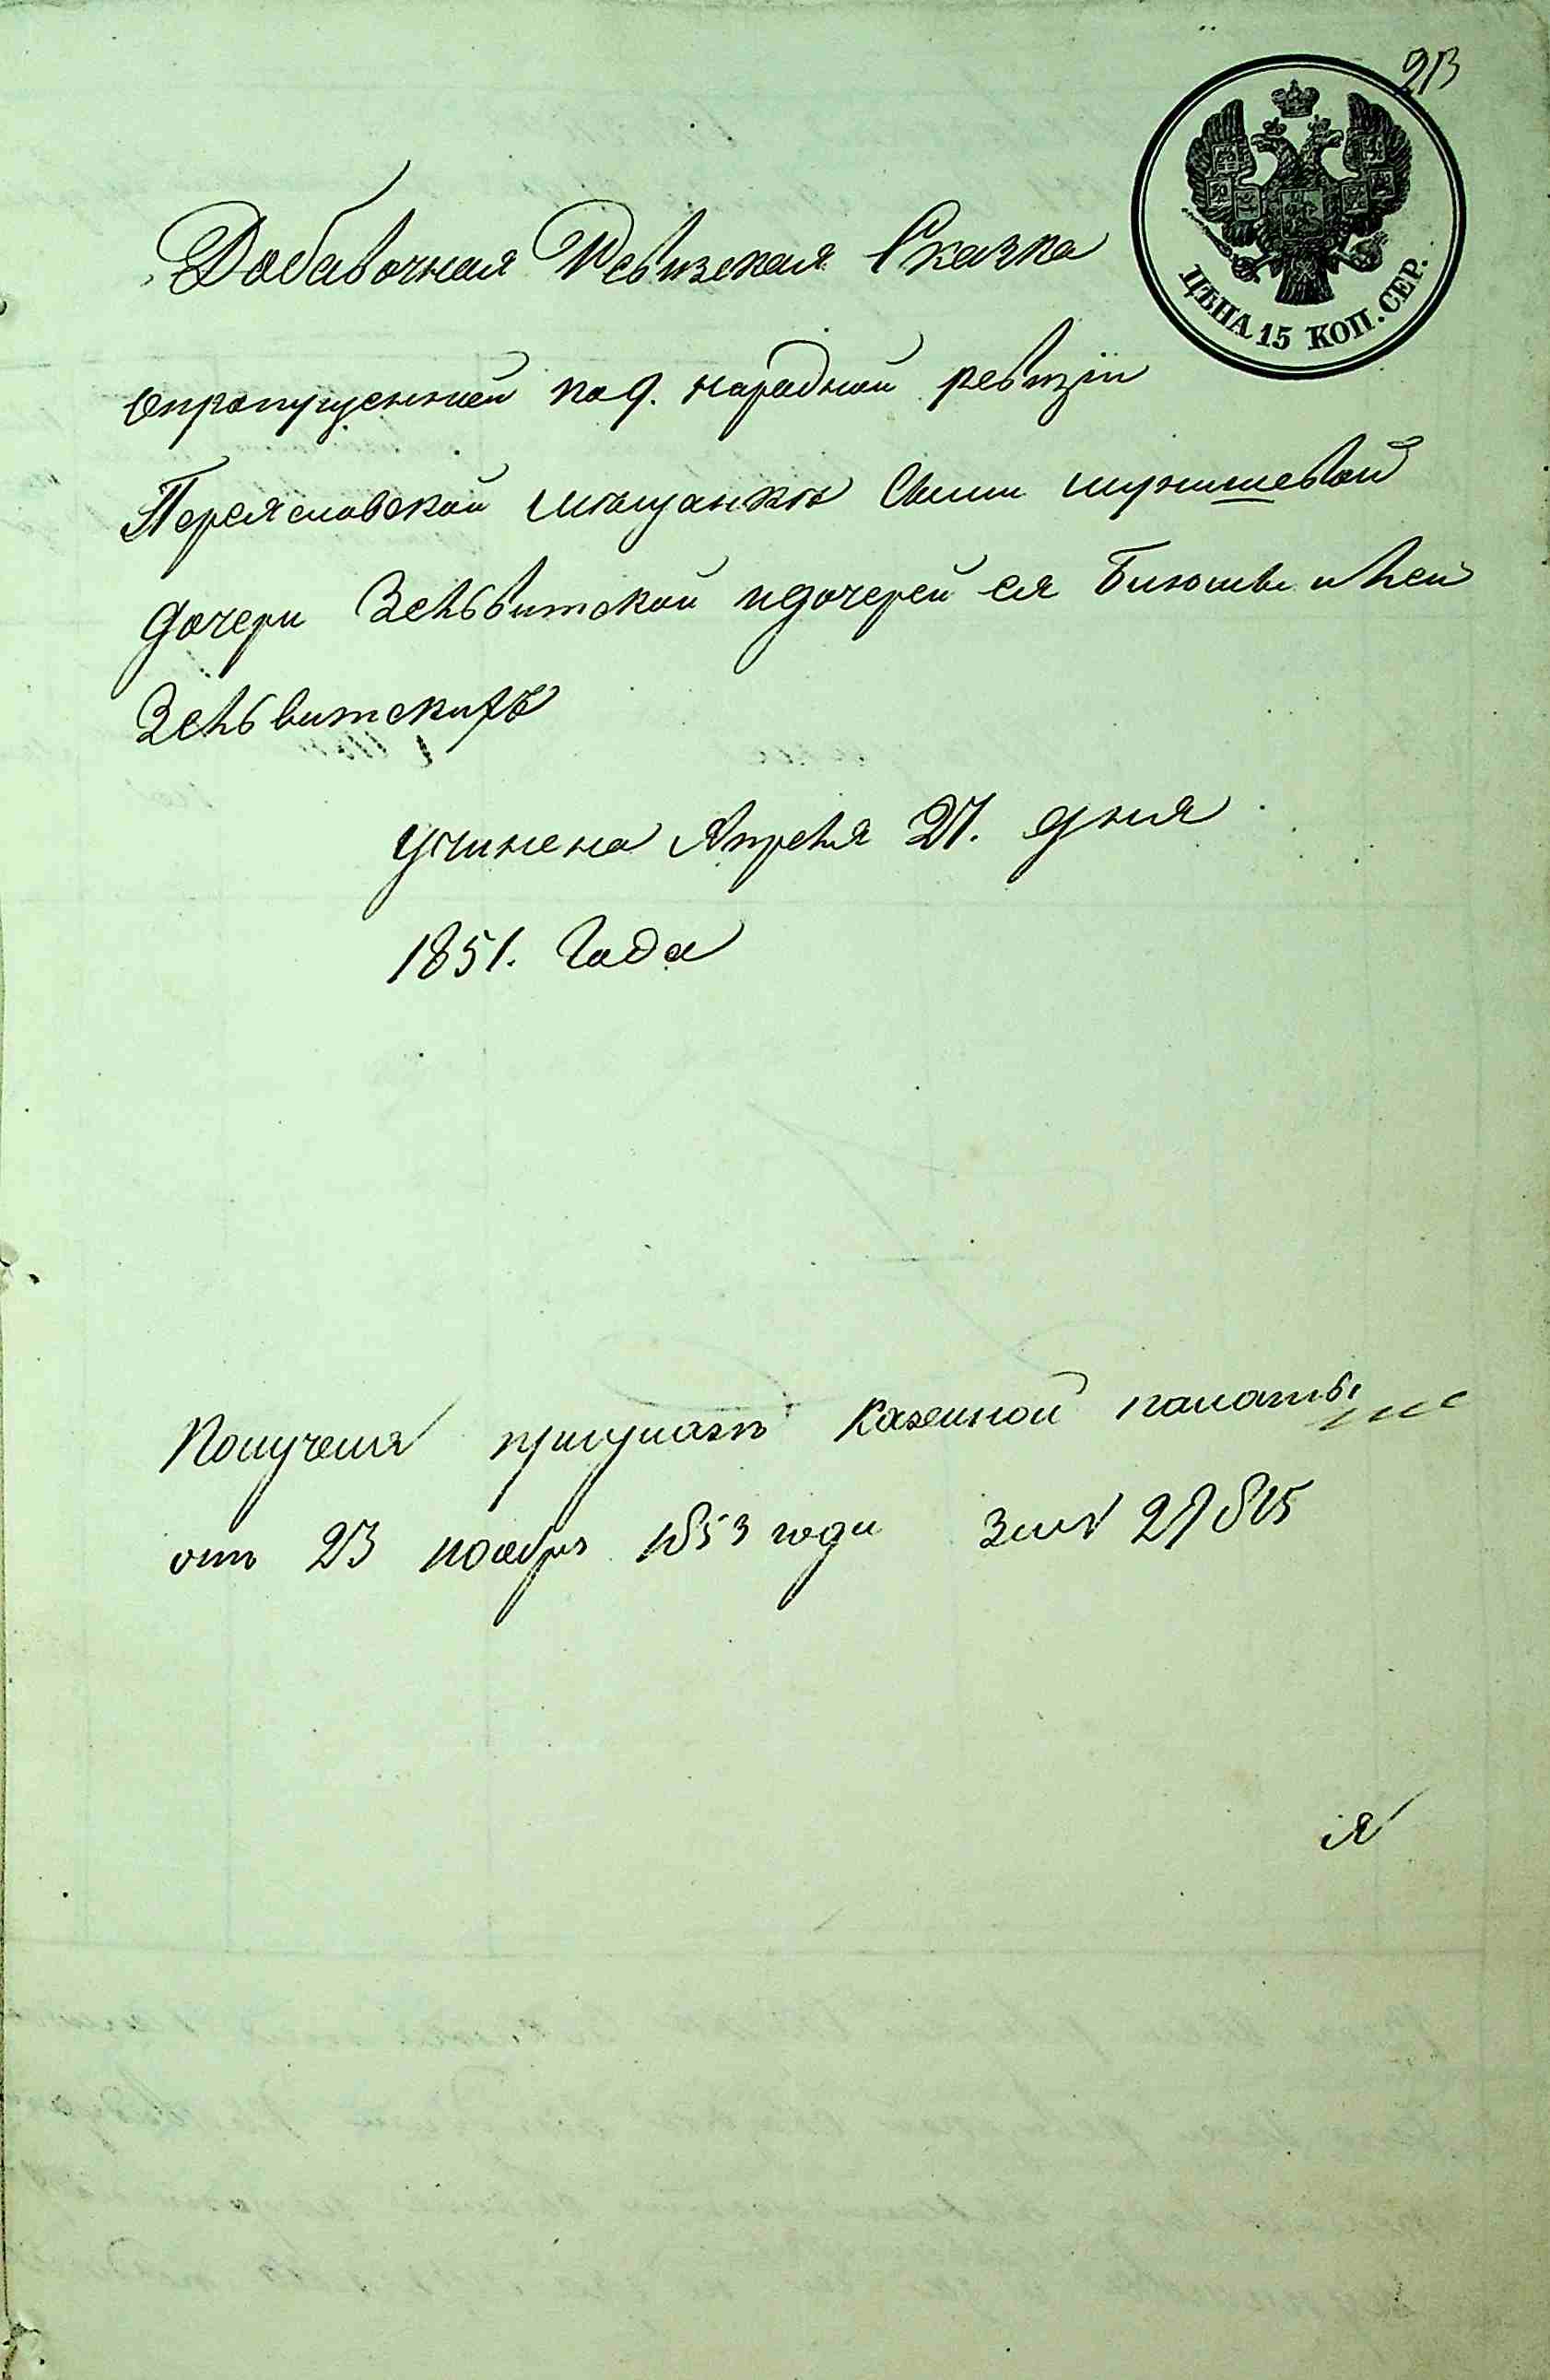 213
ЦѢНА 15 КОП. СЕР.
Добавочная Ревизская Сказка
опропущенной по 9. народной ревизіи
Переяславской мѣщанкѣ
дочери Зельвитской идочерей ея и Леи
Зельвитскихъ
Учинена Апреля 27. дня
1851. Года
Получена казенной палаты
отъ 23 ноабря 1853 года за № 27815